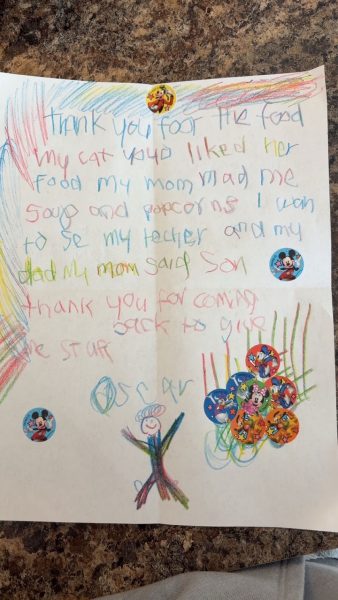 Thank you foor the food
my cat yoyo liked her
food my mom mad me
soup and popcorns I wan
to se my techer and my
dad my mom said Son
thank you for coming
back to give
me stuff
Oscar